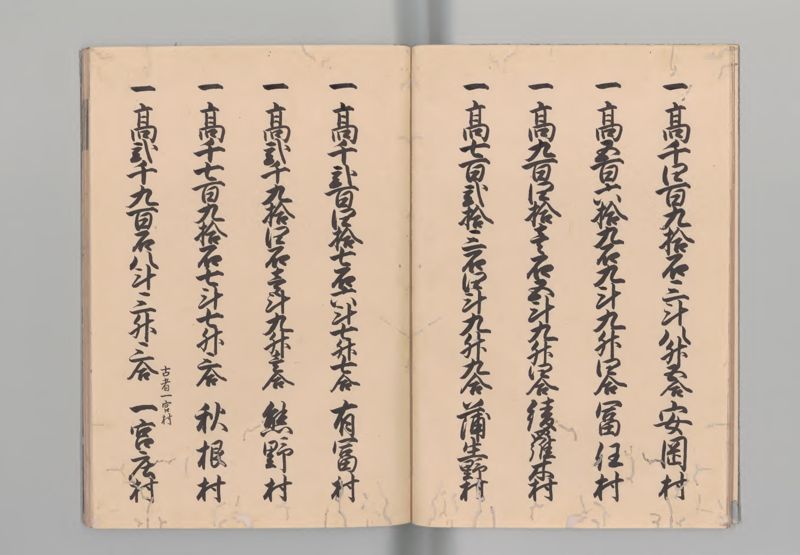 一高千四百九拾石三斗八升五合 安岡村
一高五百六拾九石九斗九升四合 冨任村
一高九百四拾壱石五斗九升四合 綾羅木村
一高七百弐拾三石四斗九升九合 蒲生野村
一高千弐百四拾七石六斗七升七合 有冨村
一高弐千九拾四石壱斗九升壱合 熊野村
一高千七百九拾石七斗七升六合 秋根村
古者一宮村
一高弐千九百石八斗三升三合 一宮庄村